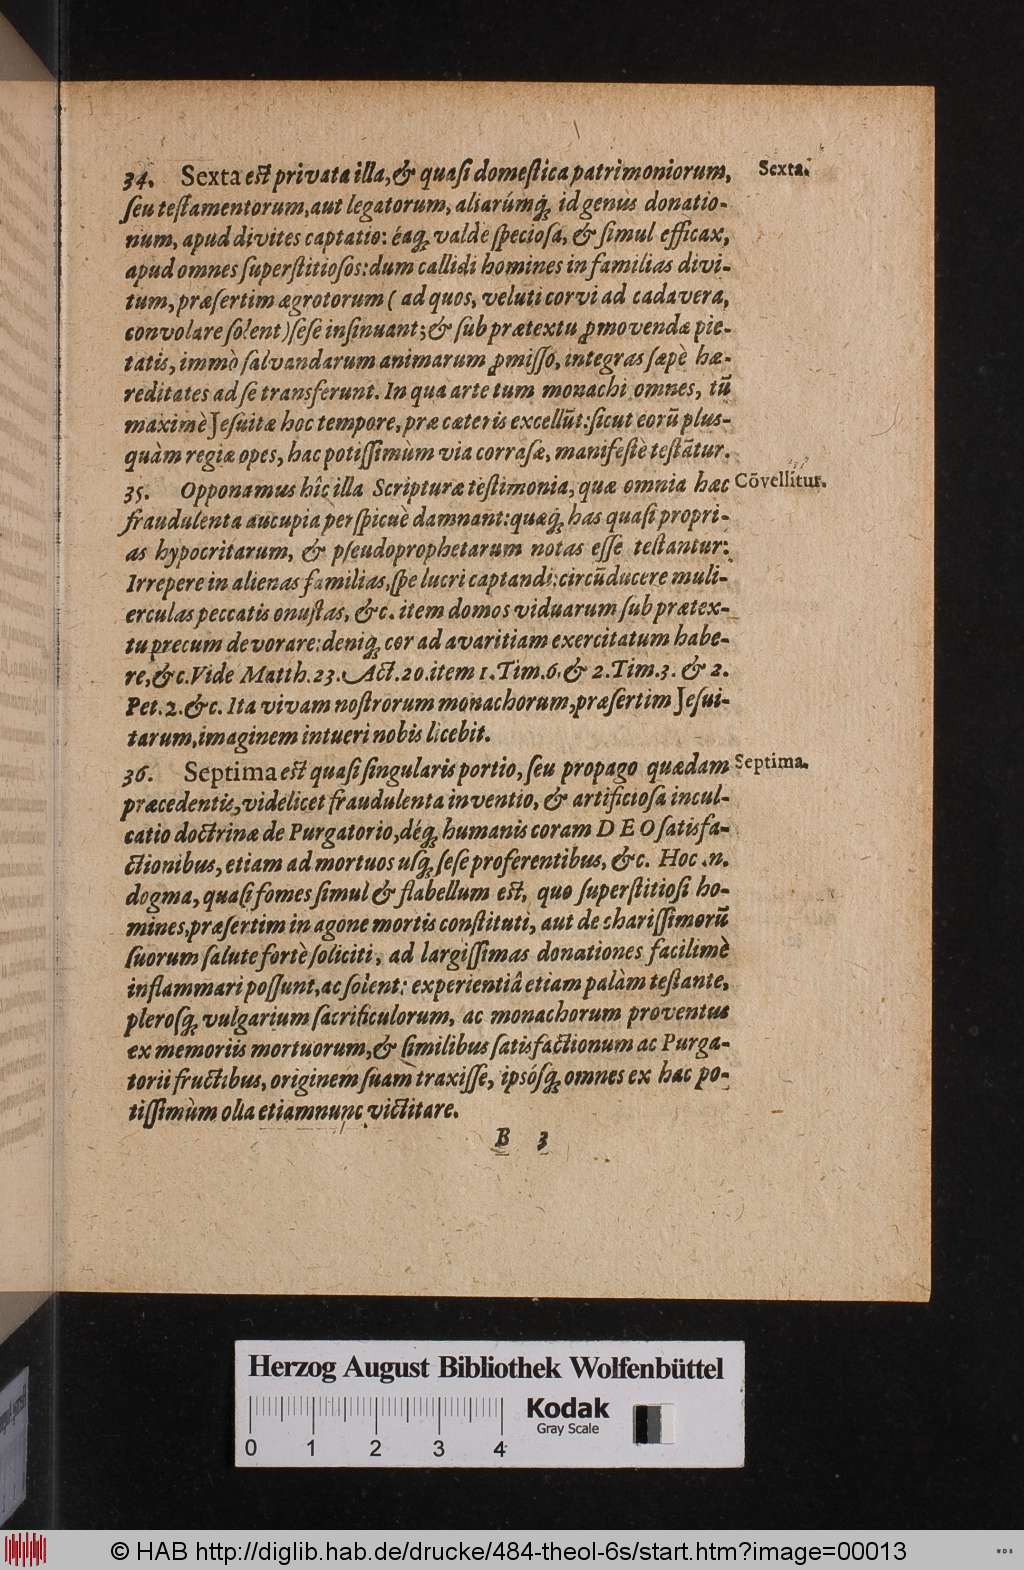 34. Sexta est privata illa, & quasi domestica patrimoniorum, Sexta.
seu testamentorum, aut legatorum, aliarúmq́; id genùs donatio-
num, apud divites captatio: éaq; valdè speciosa, & simul efficax,
apud omnes superstitiosos: dum callidi homines in familias divi-
tum, præsertim ægrotorum ( ad quos, veluti corvi ad cadavera,
convolare solent) sese insinuant; & sub prætextu ꝓmovendæ pie-
tatis, immò salvandarum animarum ꝓmisso, integras sæpè hæ-
reditates ad se transferunt. In qua arte tum monachi omnes, tū
maximè Jesuitæ hoc tempore, præ cæteris excellūt: sicut eorū plus-
quàm regiæ opes, hac potissimùm via corrasæ, manifestè testātur.
35. Opponamus hîc illa Scripturæ testimonia, quæ omnia hæc Cōvellitur.
fraudulenta aucupia perspicuè damnant: quæq́; has quasi propri-
as hypocritarum, & pseudoprophetarum notas esse testantur:
Irrepere in alienas familias, spe lucri captandi: circūducere muli-
erculas peccatis onustas, &c. item domos viduarum sub prætex-
tu precum devorare: deniq; cor ad avaritiam exercitatum habe-
re, &c. Vide Matth. 23. Act. 20. item 1. Tim. 6. & 2. Tim. 3. & 2.
Pet. 2. &c. Ita vivam nostrorum monachorum, præsertim Jesui-
tarum, imaginem intueri nobis licebit.
36. Septima est quasi singularis portio, seu propago quædam Septima.
præcedentis, videlicet fraudulenta inventio, & artificiosa incul-
catio doctrinæ de Purgatorio, déq; humanis coram DEO satisfa-
ctionibus, etiam ad mortuos usq; sese proferentibus, &c. Hoc .n.
dogma, quasi fomes simul & flabellum est, quo superstitiosi ho-
mines, præsertim in agone mortis constituti, aut de charissimorū
suorum salute fortè soliciti, ad largissimas donationes facilimè
inflammari possunt, ac solent: experientiâ etiam palàm testante,
plerosq; vulgarium sacrificulorum, ac monachorum proventus
ex memoriis mortuorum, & similibus satisfactionum ac Purga-
torii fructibus, originem suam traxisse, ipsósq; omnes ex hac po-
tissimùm olla etiamnunc victitare.
B 3
Herzog August Bibliothek Wolfenbüttel
Kodak
Gray Scale
0 1 2 3 4
© HAB http://diglib.hab.de/drucke/484-theol-6s/start.htm?image=00013